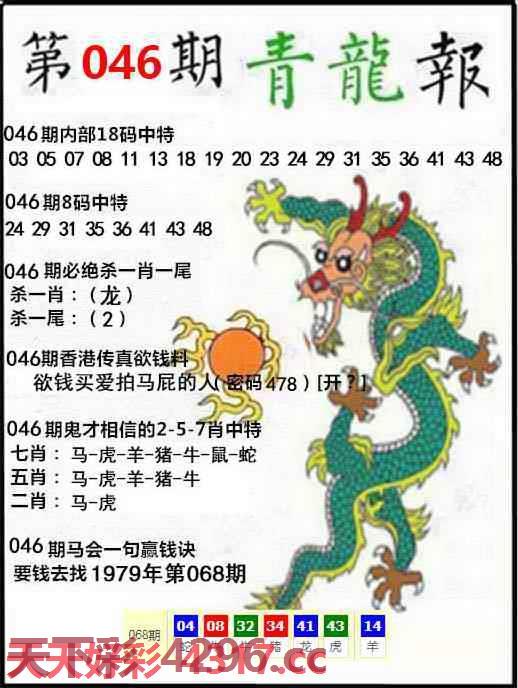 第046期青龍報
046期内部18码中特
03 05 07 08 11 13 18 19 20 23 24 29 31 35 36 41 43 48
046期8码中特
24 29 31 35 36 41 43 48
046期必绝杀一肖一尾
杀一肖：（龙）
杀一尾：（2）
046期香港传真欲钱料
欲钱买爱拍马屁的人(密码478)[开？]
046期鬼才相信的2-5-7肖中特
七肖：马-虎-羊-猪-牛-鼠-蛇
五肖：马-虎-羊-猪-牛
二肖：马-虎
046期马会一句赢钱诀
要钱去找1979年第068期
068期 04 08 32 34 41 43 14
蛇 牛 猪 龙 虎 羊
天天好彩44296.cc